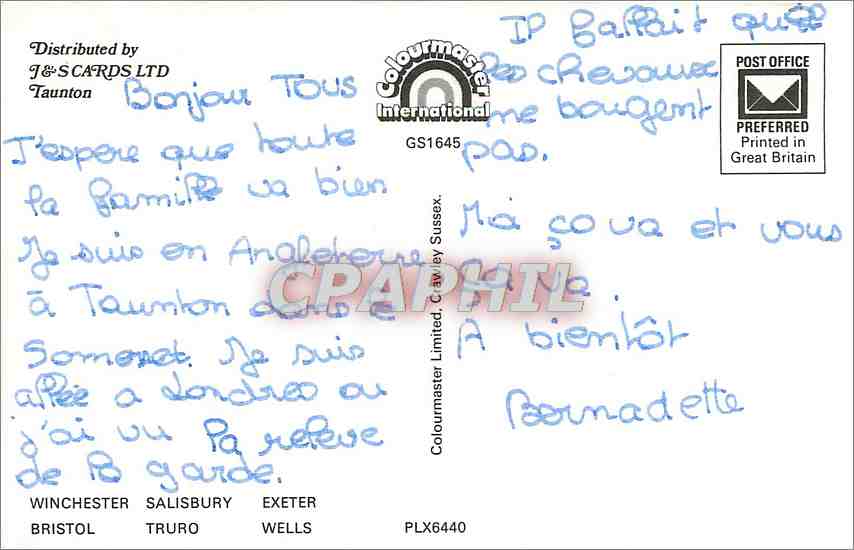 Distributed by
J&S CARDS LTD
Taunton
Bonjour TOUS
J'espere que toute
la famille va bien
Je suis en Angleterre
à Taunton dans le
Somerset. Je suis
allée a Londres ou
j'ai vu la releve
de la garde.
WINCHESTER SALISBURY EXETER
BRISTOL TRURO WELLS
Colourmaster
International
GS1645
Colourmaster Limited, Crawley Sussex.
PLX6440
CPAPHIL
POST OFFICE
PREFERRED
Printed in
Great Britain
Il fallait que
les chevaux
ne bougent
pas.
Moi ça va et vous
ça va
A bientôt
Bernadette